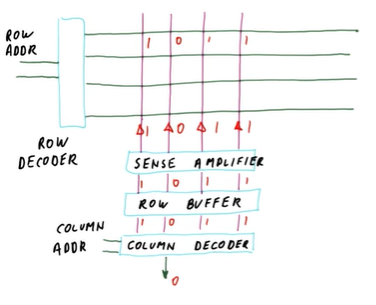 ROW
ADDR
1 0 1 1
ROW
DECODER
1 0 1 1
SENSE AMPLIFIER
1 0 1 1
ROW BUFFER
1 0 1 1
COLUMN
ADDR
COLUMN DECODER
0